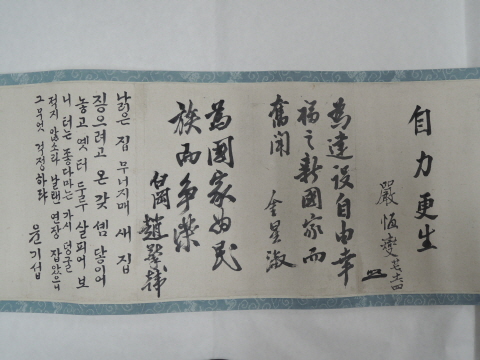 自力更生
嚴恆燮
為建設自由幸
福之新國家而
奮闘 金星淑
為國家為民
族而爭榮
白岡 趙擎韓
낡은 집 무너지매 새 집
짓으려고 온갖 셈 닿이어
놓고 옛 터 두루 살피어 보
니 터는 좋다마는 가시 덩구른
적지 않소라 날랜 연장 잡았으니
그 무엇 걱정하랴 윤기섭